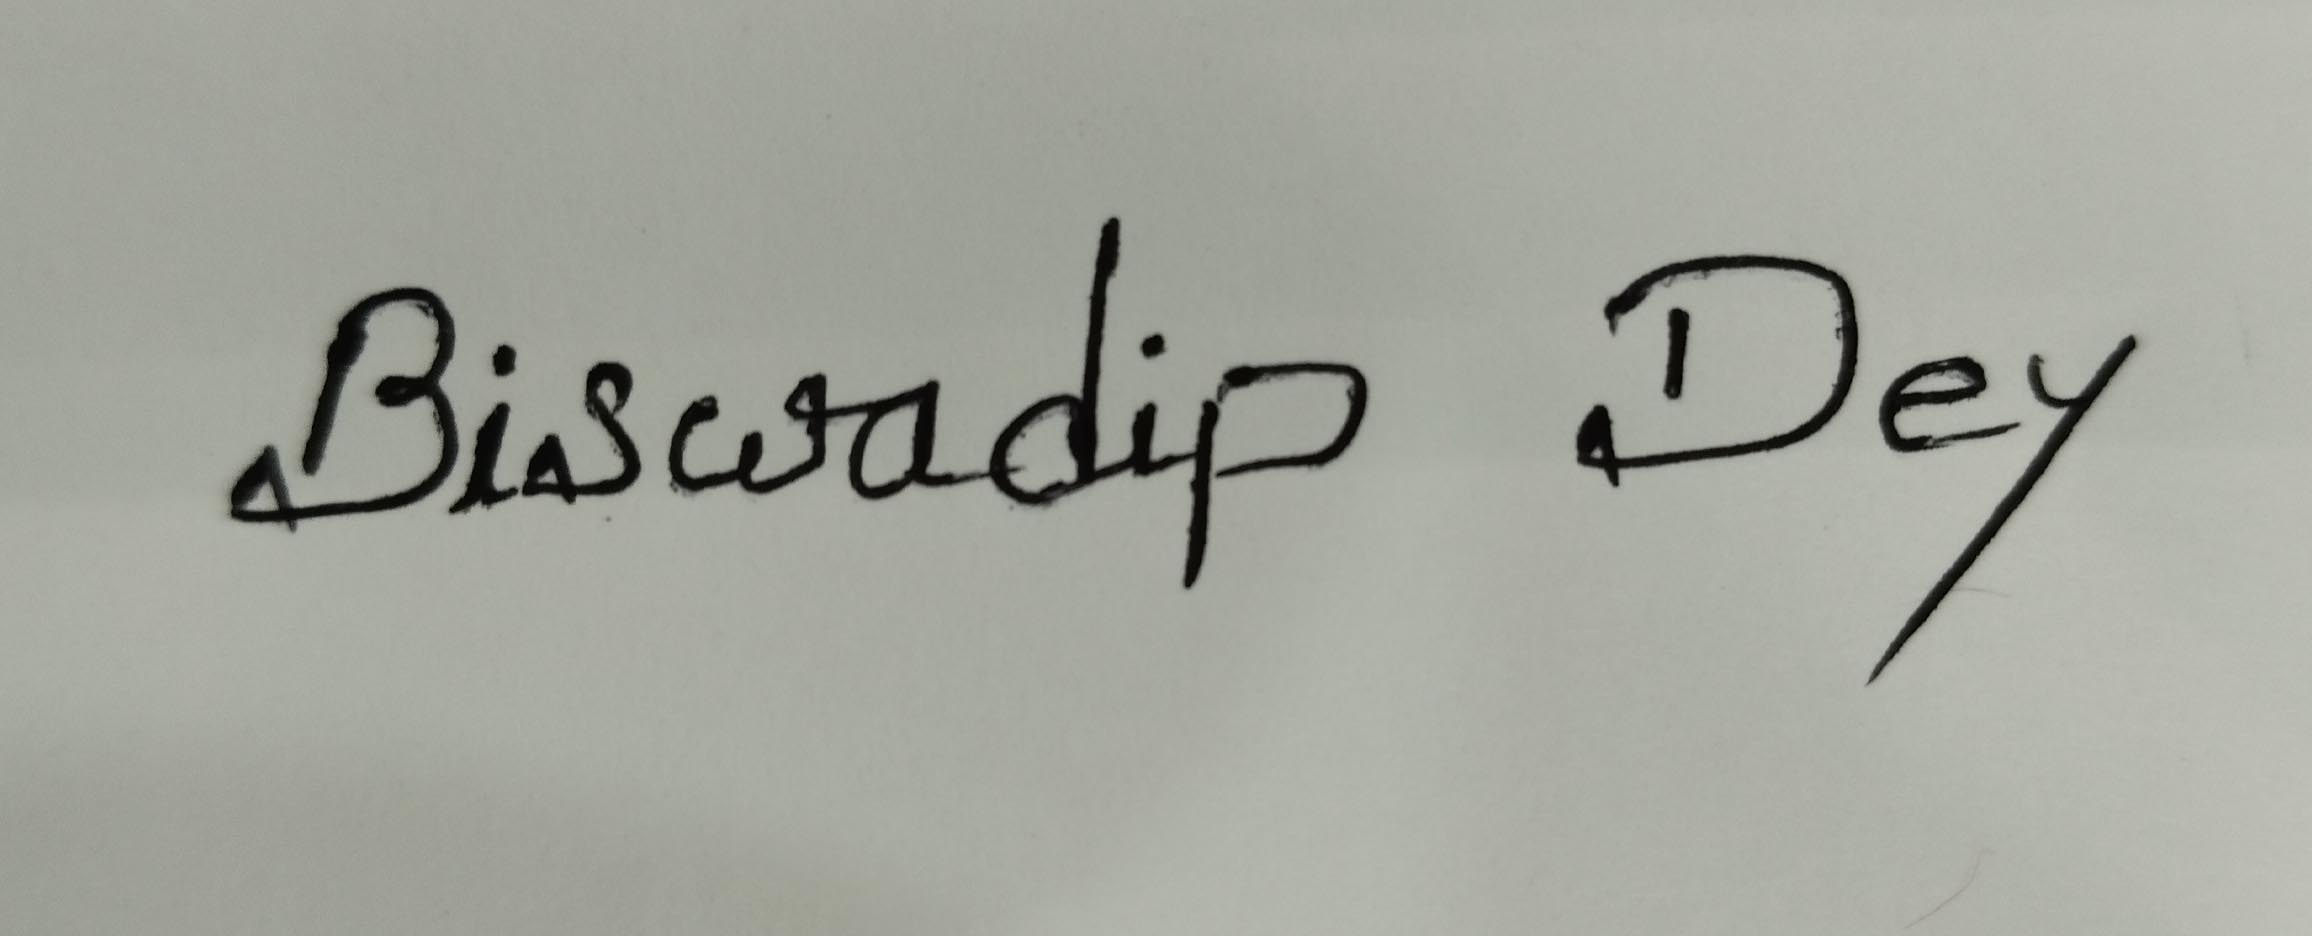 Biswadip Dey